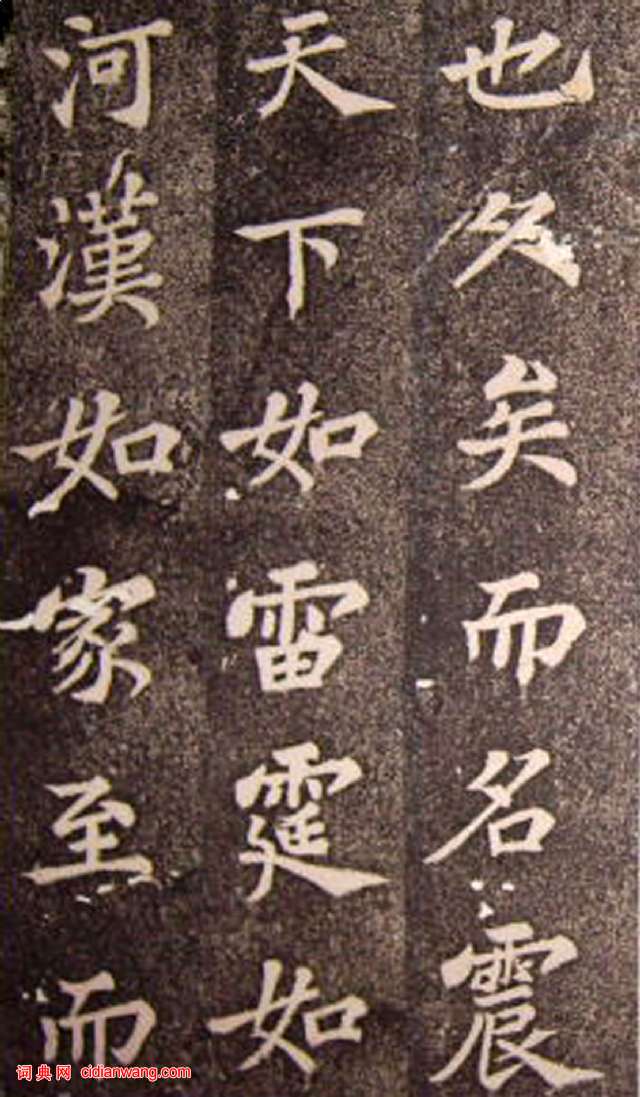 也久矣而名震
天下如雷霆如
河漢如家至而
词典网 cidianwang.com